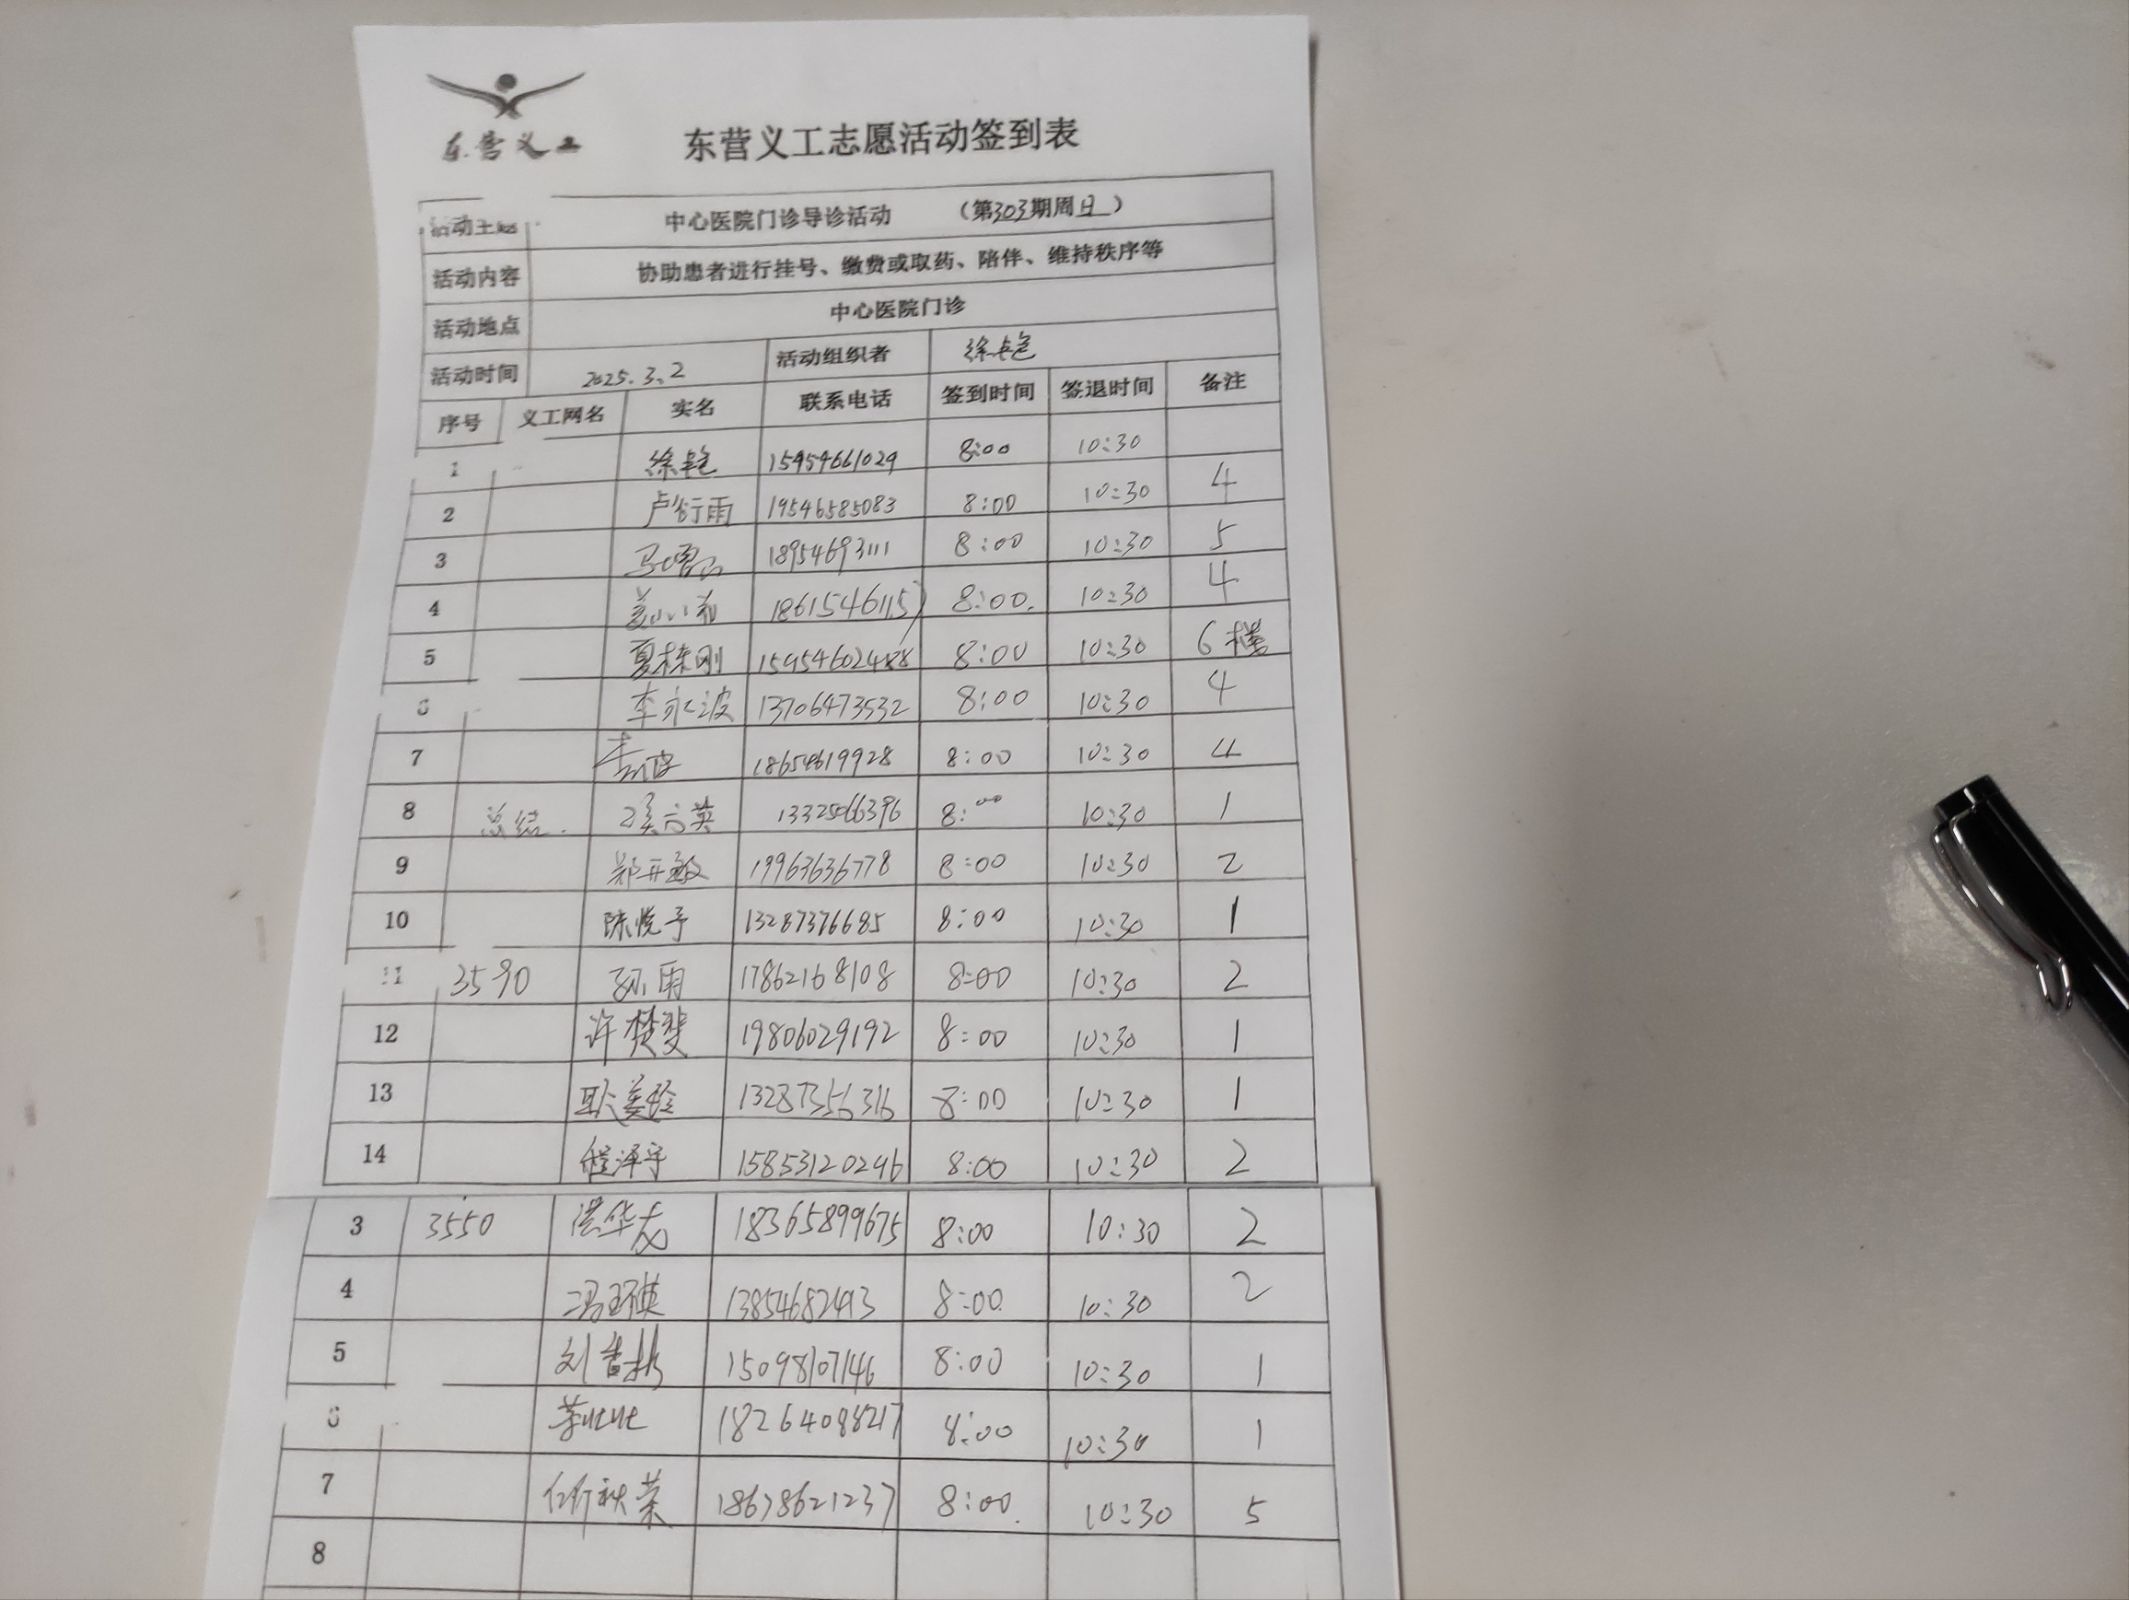 东营义工
东营义工志愿活动签到表
活动主题 中心医院门诊导诊活动 (第303期周日)
活动内容 协助患者进行挂号、缴费或取药、陪伴、维持秩序等
活动地点 中心医院门诊
活动时间 2025.3.2 活动组织者 徐艳
序号 义工网名 实名 联系电话 签到时间 签退时间 备注
1 徐艳 15954661029 8:00 10:30
2 卢衍雨 19546585083 8:00 10:30 4
3 18954693111 8:00 10:30 5
4 8:00. 10:30 4
5 夏栋刚 15954602488 8:00 10:30 6楼
6 李永波 13706473532 8:00 10:30 4
7 18654619928 8:00 10:30 4
8 8:00 10:30 1
9 19963636778 8:00 10:30 2
10 陈悦予 13287376685 8:00 10:30 1
11 3590 孙雨 17862168108 8:00 10:30 2
12 许楚斐 19806029192 8:00 10:30 1
13 13287356316 8:00 10:30 1
14 程泽宇 15853120246 8:00 10:30 2
3 3550 洪华友 18365899675 8:00 10:30 2
4 冯环英 13854682413 8:00 10:30 2
5 15098107146 8:00 10:30 1
6 18264088217 8:00 10:30 1
7 任秋荣 18678621237 8:00. 10:30 5
8